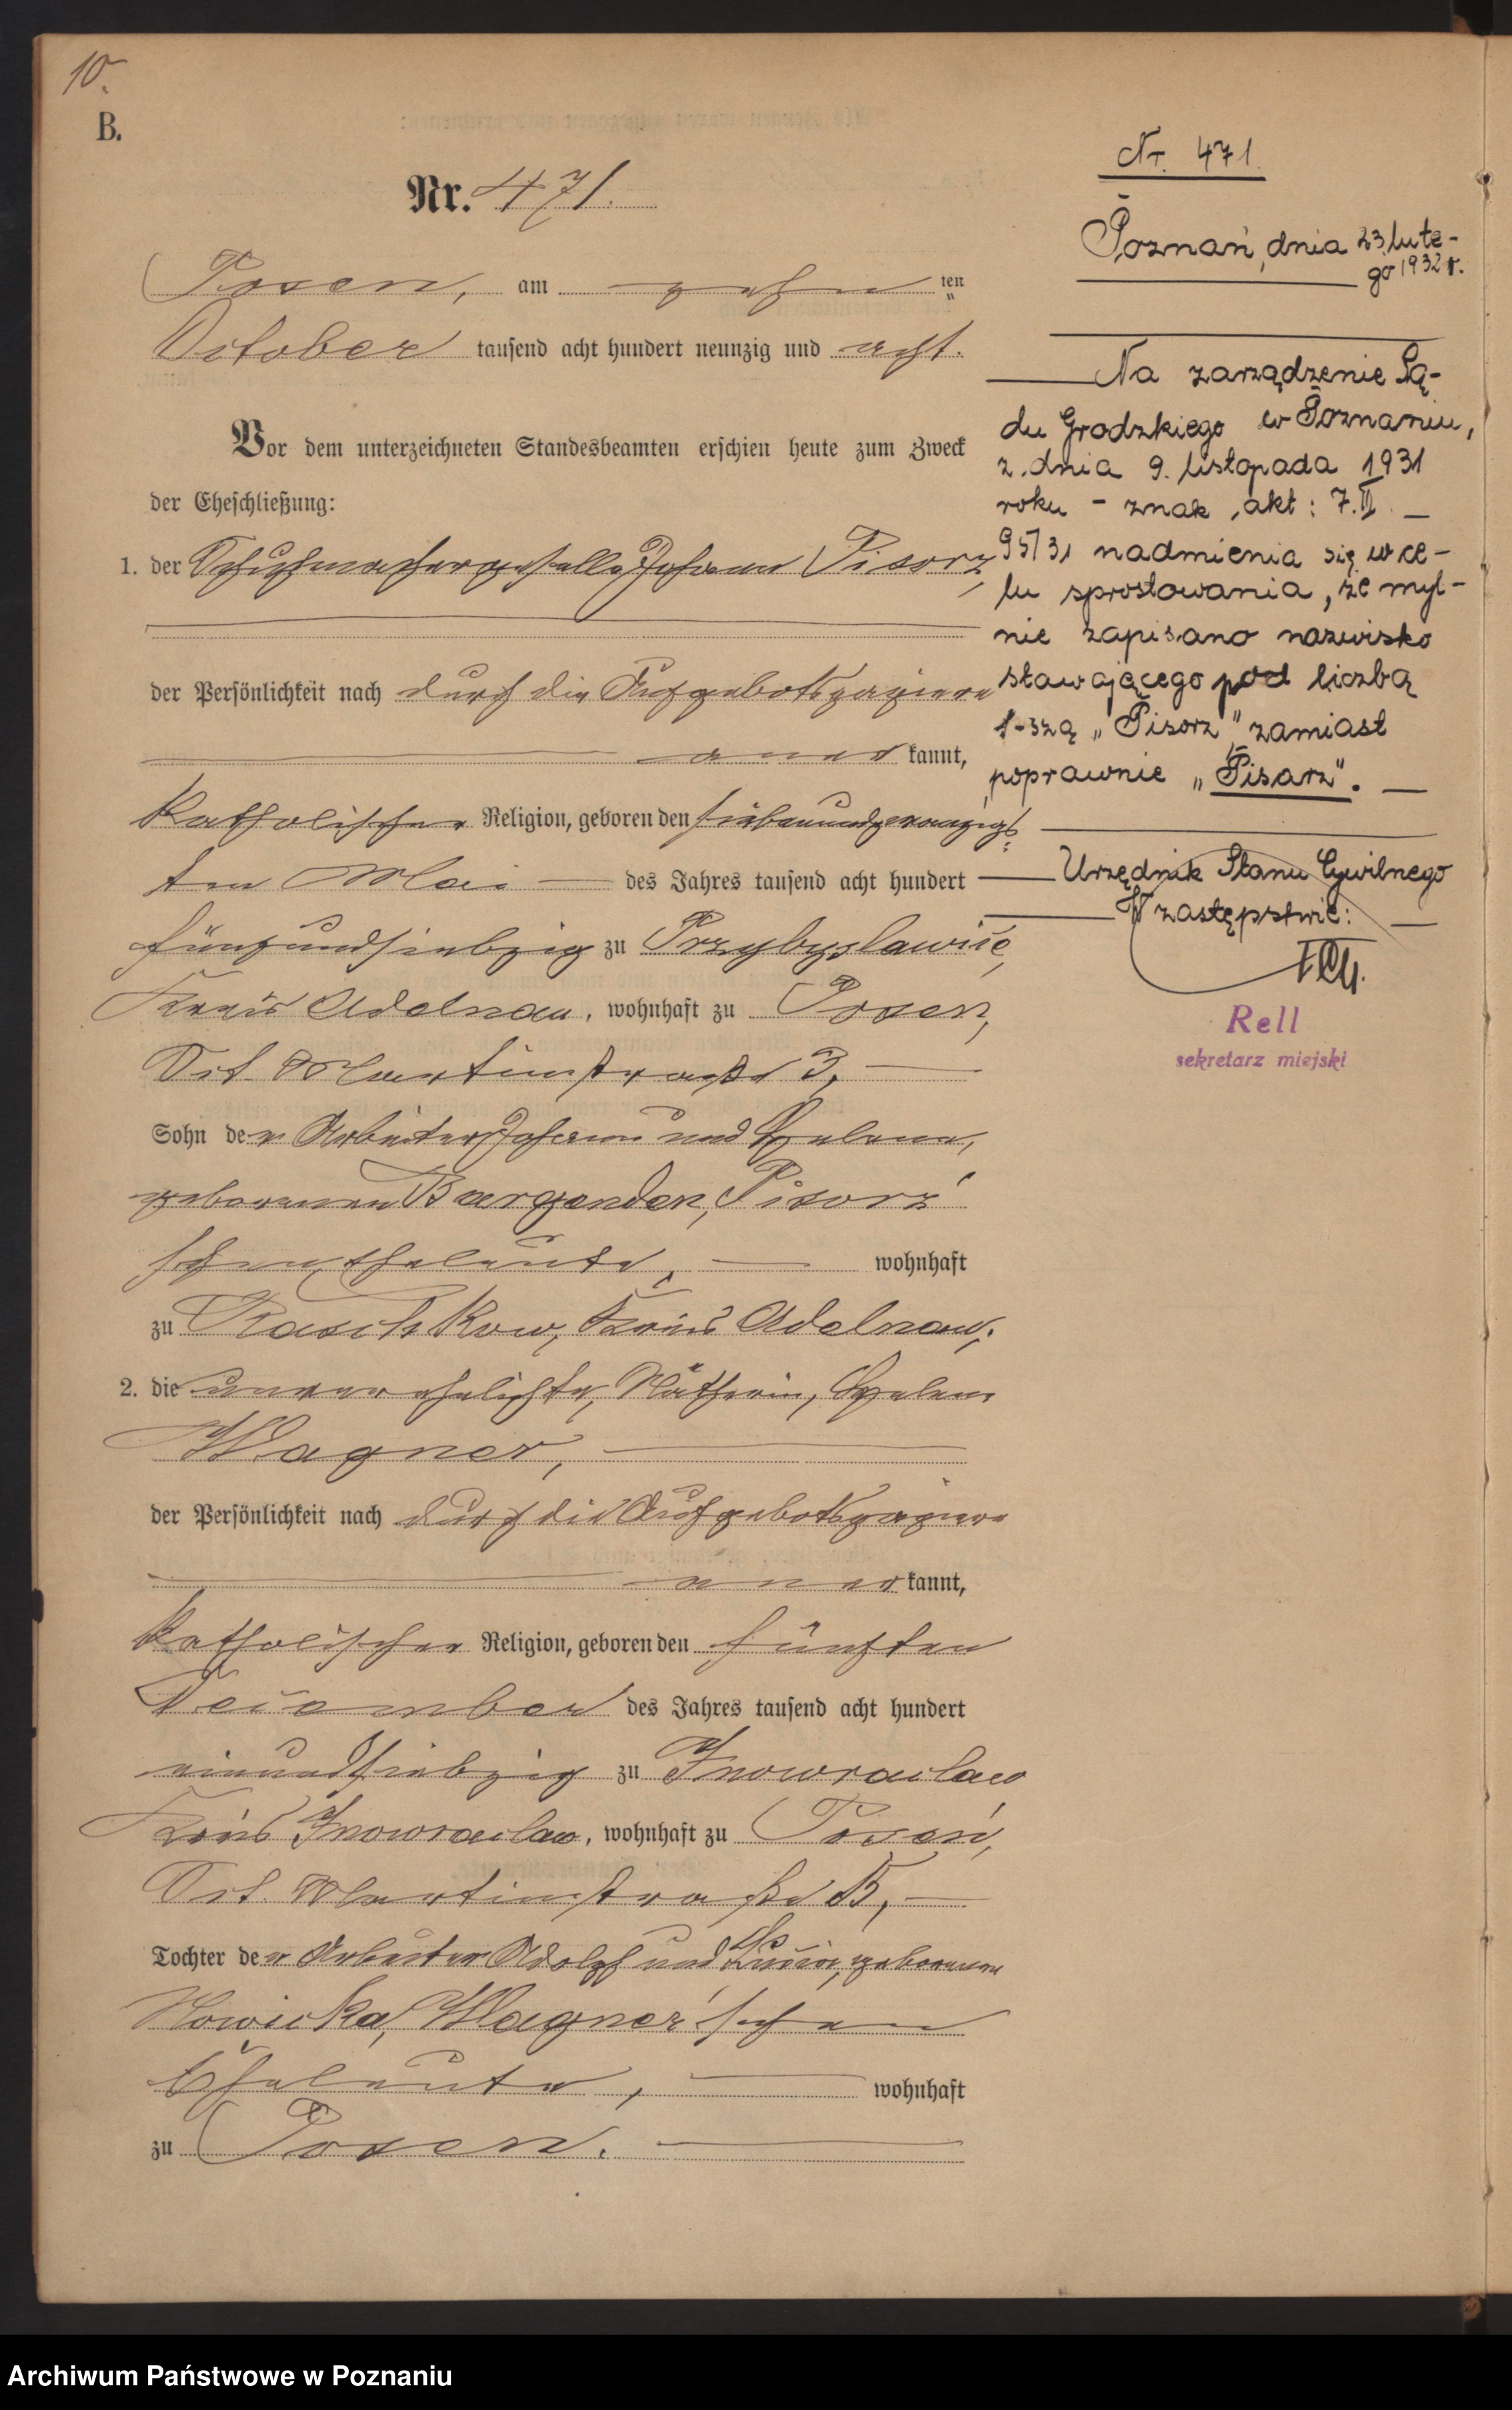 10.
B.
Nr. 471.
Posen, am zehn ten
October tausend acht hundert neunzig und acht.
Vor dem unterzeichneten Standesbeamten erschien heute zum Zweck
der Eheschließung:
1. der Schuhmachergeselle Johann Pisorz,
der Persönlichkeit nach durch die Aufgebotspapiere
aner kannt,
katholischer Religion, geboren den siebenundzwanzigs-
ten Mai des Jahres tausend acht hundert
fünfundsiebzig zu Przybyslawice,
Kreis Adelnau, wohnhaft zu Posen,
Sct. Martinstraße 3,
Sohn der Arbeiter Johann und Helene,
geborenen Pisorz'
schen Eheleute, wohnhaft
zu Raschkow, Kreis Adelnau;
2. die unverehelichte, Nätherin, Helene
Wagner,
der Persönlichkeit nach durch die Aufgebotspapiere
aner kannt,
katholischer Religion, geboren den fünften
December des Jahres tausend acht hundert
einundsiebzig zu Inowraclaw
Kreis Inowraclaw, wohnhaft zu Posen,
Sct. Martinstraße
Tochter der Arbeiter Adolph und geborenen
Nowicka, Wagner'schen
Eheleute, wohnhaft
zu Posen.
Nr. 471.
Poznań, dnia 23. lute-
go 1932 r.
Na zarządzenie Są-
du Grodzkiego w Poznaniu,
z dnia 9. listopada 1931
roku - znak akt: 7. II. —
95/31 nadmienia się w ce-
lu sprostowania, że myl-
nie zapisano nazwisko
stawającego pod liczbą
1-szą „Pisorz" zamiast
poprawnie „Pisarz". —
Urzędnik Stanu Cywilnego
W zastępstwie:
Rell
sekretarz miejski
Archiwum Państwowe w Poznaniu